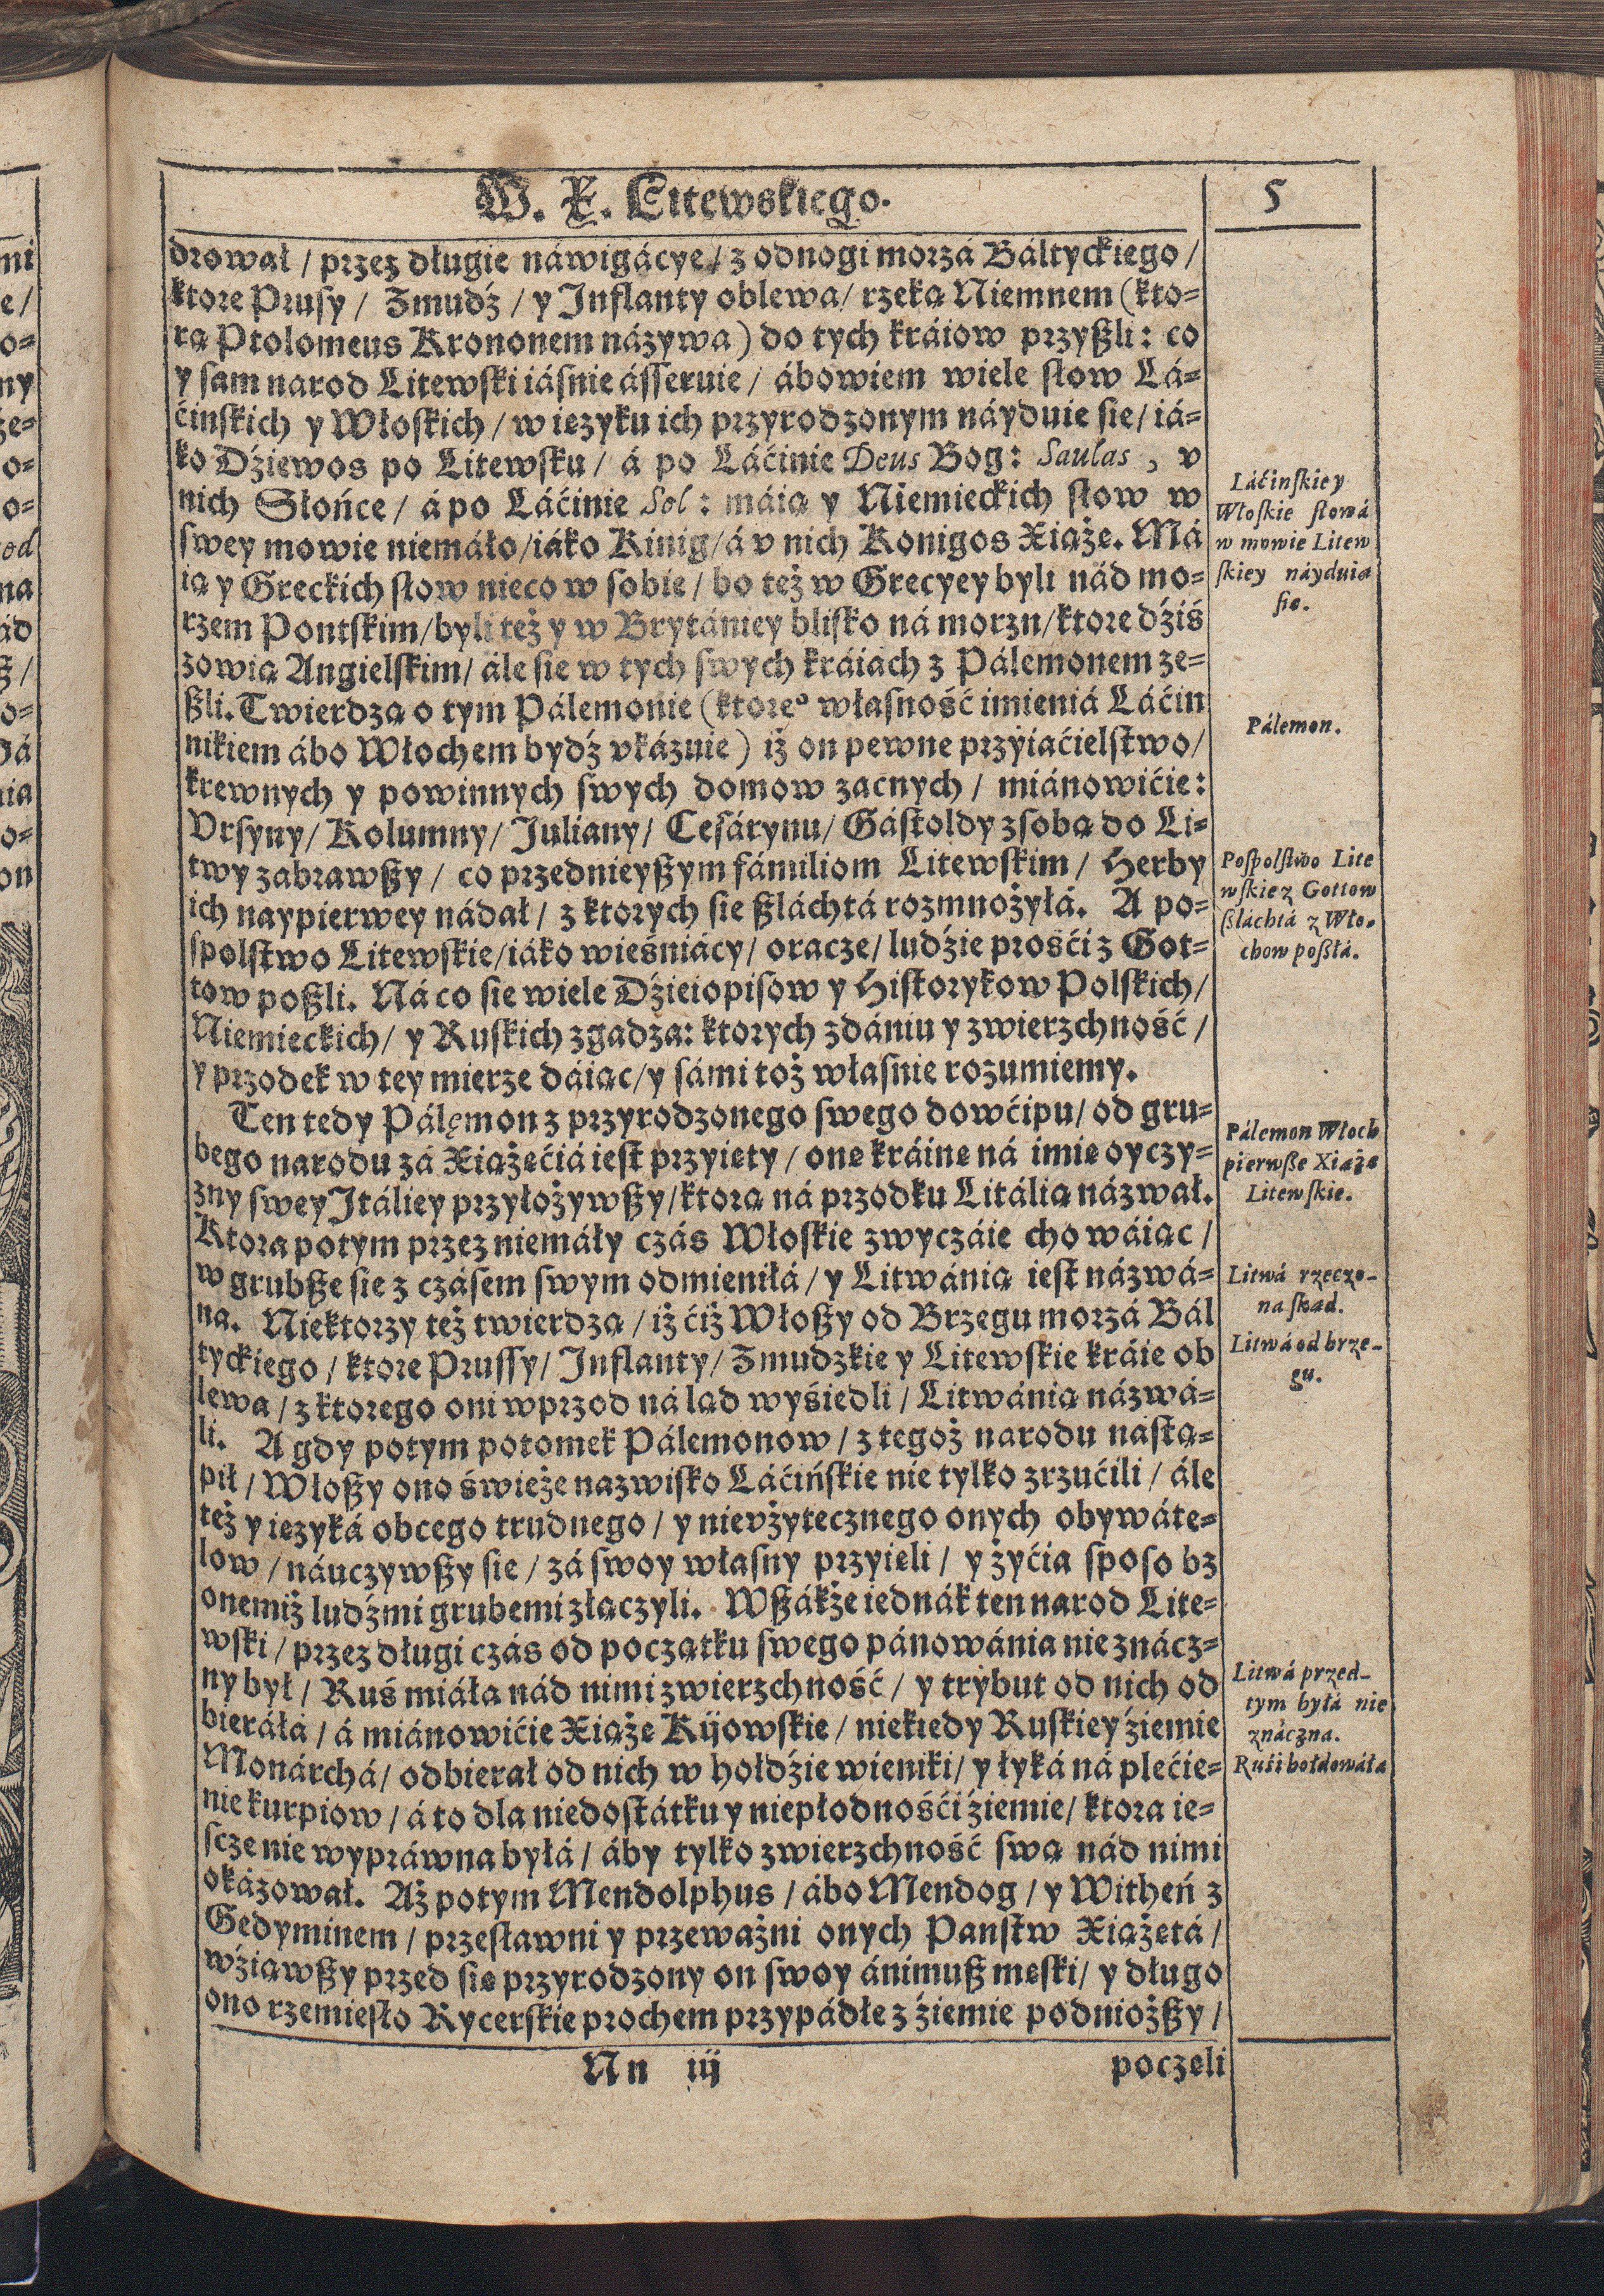 W. X. Litewskiego.
5
drował / przez długie náwigácye / z odnogi morzá Báltyckiego /
ktore Prusy / Zmudź / y Inflanty oblewa / rzeką Niemnem (kto-
rą Ptolomeus Krononem názywa) do tych kráiow przyßli: co
y sam narod Litewski iásnie ásseruie / ábowiem wiele słow Lá-
ćinskich y Włoskich / w ięzyku ich przyrodzonym náyduie się / iá-
ko Dźiewos po Litewsku / á po Láćinie Deus Bog: Saulas, v
nich Słońce / á po Láćinie Sol: máią y Niemieckich słow w
swey mowie niemáło / iáko Kinig / á v nich Konigos Xiążę. Má
ią y Greckich słow nieco w sobie / bo też w Grecyey byli nád mo-
rzem Pontskim / byli też y w Brytániey blisko ná morzn / ktore dźiś
zowią Angielskim / ále się w tych swych kráiách z Pálemonem ze-
ßli. Twierdzą o tym Pálemonie (ktoreº własność imieniá Láćin
nikiem ábo Włochem bydź vkázuie) iż on pewne przyiaćielstwo /
krewnych y powinnych swych domow zacnych / miánowićie:
Vrsyny / Kolumny / Juliany / Cesárynu / Gástoldy z sobą do Li-
twy zabrawßy / co przednieyßym fámiliom Litewskim / Herby
ich naypierwey nádał / z ktorych się ßláchtá rozmnożyłá. A po-
spolstwo Litewskie / iáko wieśniácy / oracze / ludźie prośći z Got-
tow poßli. Ná co się wiele Dźieiopisow y Historykow Polskich /
Niemieckich / y Ruskich zgadza: ktorych zdániu y zwierzchność /
y przodek w tey mierze dáiąc / y sámi toż własnie rozumiemy.
Ten tedy Pálęmon z przyrodzonego swego dowćipu / od gru-
bego narodu zá Xiążęćiá iest przyięty / onę kráinę ná imię oyczy-
zny swey Itáliey przyłożywßy / ktorą ná przodku Litálią názwał.
Ktora potym przez niemáły czás Włoskie zwyczáie cho wáiąc /
w grubße się z czásem swym odmieniłá / y Litwánią iest názwá-
na. Niektorzy też twierdzą / iż ćiż Włoßy od Brzegu morzá Bál
tyckiego / ktore Prussy / Inflanty / Zmudzkie y Litewskie kráie ob
lewa / z ktorego oni wprzod ná ląd wyśiedli / Litwánią názwá-
li. A gdy potym potomek Pálemonow / z tegoż narodu nastą-
pił / Włoßy ono świeże nazwisko Láćińskie nie tylko zrzućili / ále
też y ięzyká obcego trudnego / y nievżytecznego onych obywáte-
low / náuczywßy się / zá swoy własny przyięli / y żyćia sposo bz
onemiż ludźmi grubemi złączyli. Wßákże iednák ten narod Lite-
wski / przez długi czás od początku swego pánowánia nie znácz-
ny był / Ruś miáła nád nimi zwierzchność / y trybut od nich od
bieráłá / á miánowićie Xiążę Kijowskie / niekiedy Ruskiey źiemie
Monárchá / odbierał od nich w hołdźie wieniki / y łyká ná plećie-
nie kurpiow / á to dla niedostátku y niepłodnośći źiemie / ktora ie-
scze nie wypráwna byłá / áby tylko zwierzchność swą nád nimi
okázował. Aż potym Mendolphus / ábo Mendog / y Witheń z
Gedyminem / przesławni y przeważni onych Panstw Xiążętá /
wźiąwßy przed się przyrodzony on swoy ánimuß męski / y długo
ono rzemięsło Rycerskie prochem przypádłe z źiemie podniożßy /
Nn iij
poczęli
Láćinskie y
Włoskie słowá
w mowie Litew
skiey náyduią
się.
Pálemon.
Pospolstwo Lite
wskie z Gottow
ßláchtá z Wło-
chow poßłá.
Pálemon Włoch
pierwße Xiążę
Litewskie.
Litwá rzeczo-
na skąd.
Litwá od brze-
gu.
Litwá przed-
tym byłá nie
znáczna.
Ruśi hołdowáła